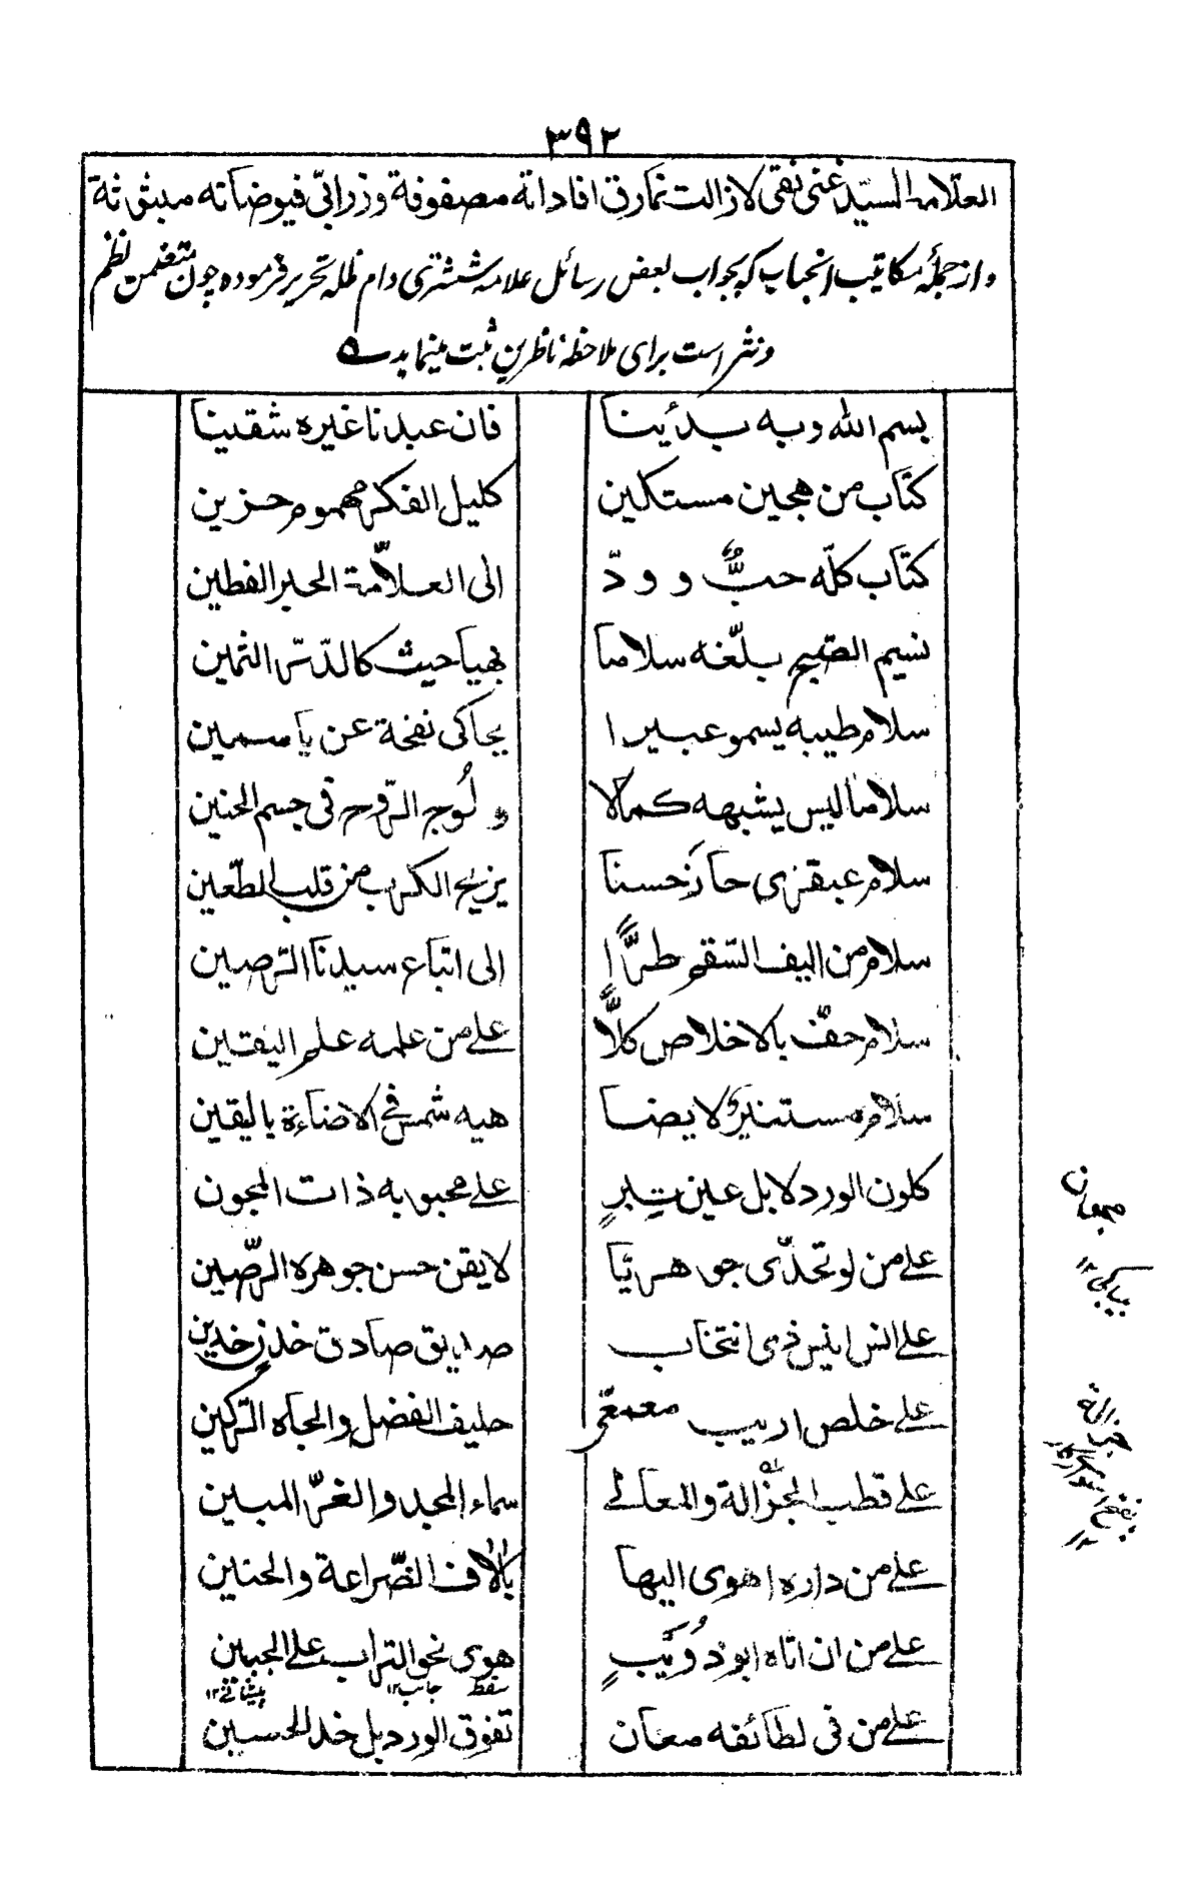 ۳۹۲
العلامة السيّد غنى نقى لازالت نمارق افاداته مصفوفة وزرابىّ فيوضاته مبثوثة
و از جملۀ مکاتیب آنجناب که بجواب بعض رسائل علامه شششتری دام ظله تحریر فرموده چون متضمن نظم
و نثر است برای ملاحظه ناظرین ثبت مینماید
بسم الله وبه بدئينا فان عبدنا غيره شقينا
كتاب من هجين مستكين كليل الفكر مهموم حزين
كتاب كلّه حبٌّ وودّ الى العلّامة الحبر الفطين
نسيم الصبح بلّغه سلاما بهيا حيث كالدّر الثمين
سلام طيبه يسمو عبيرا يحاكى نفخة عن ياسمين
سلاما ليس يشبهه كمالا ولُوج الرّوح فى جسم الحنين
سلام عبقرى حاز حسنا يزيح الكرب من قلب الطّعين
سلام من اليف السّقم طرًّا الى اتباع سيدنا الرّصين
سلام حفّ بالاخلاص كلًّا على من علمه علم اليقين
سلام مستنير لا يضا هيه شمس فى الاضاءة باليقين
كلون الورد لا بل عين تبرٍ على محبوبه ذات المجون
على من لو تحدّى جوهريّا لايقن حسن جوهره الرّصين
على انس انيس ذى انتخاب صديق صادق خدن خدين
على خلص اريب معمعىّ حليف الفضل والجاه الرّكين
على قطب الجزالة والمعالى سماء المجد والغرّ المبين
على من داره اهوى اليها بآلاف الضّراعة والحنين
على من ان اتاه ابو ذُوَيبٍ هوى نحو التراب على الجبين
سقط جانب۱۲ پیشانی۱۲
على من فى لطائفه معان تفوق الورد بل خد الحسين
مجون
بیباکی ۱۲
جزالة